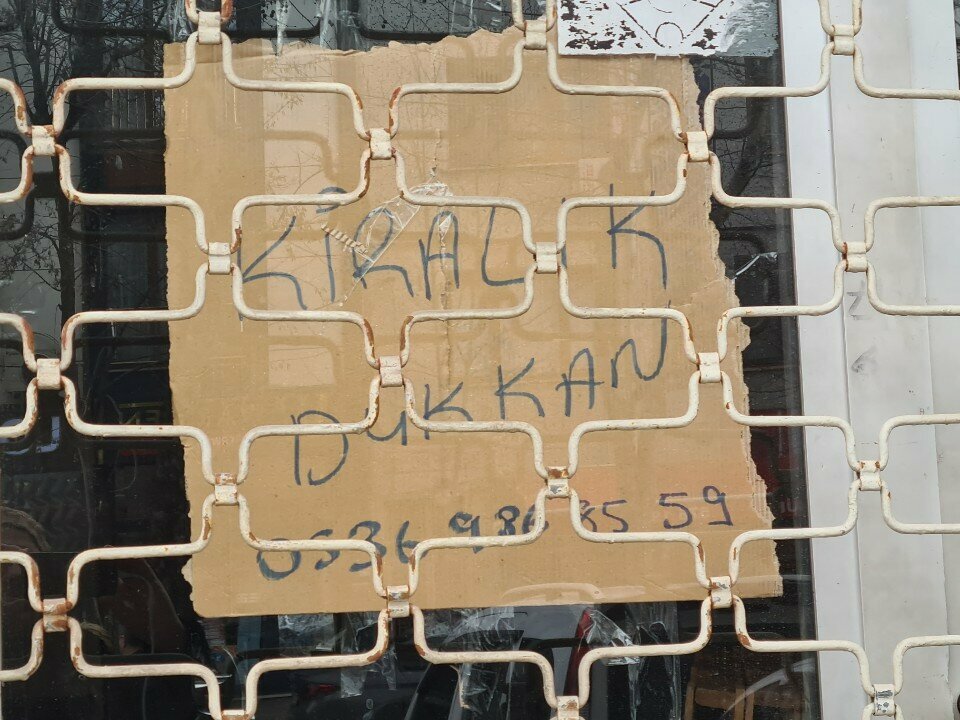 KİRALIK
DUKKAN
0536 986 85 59